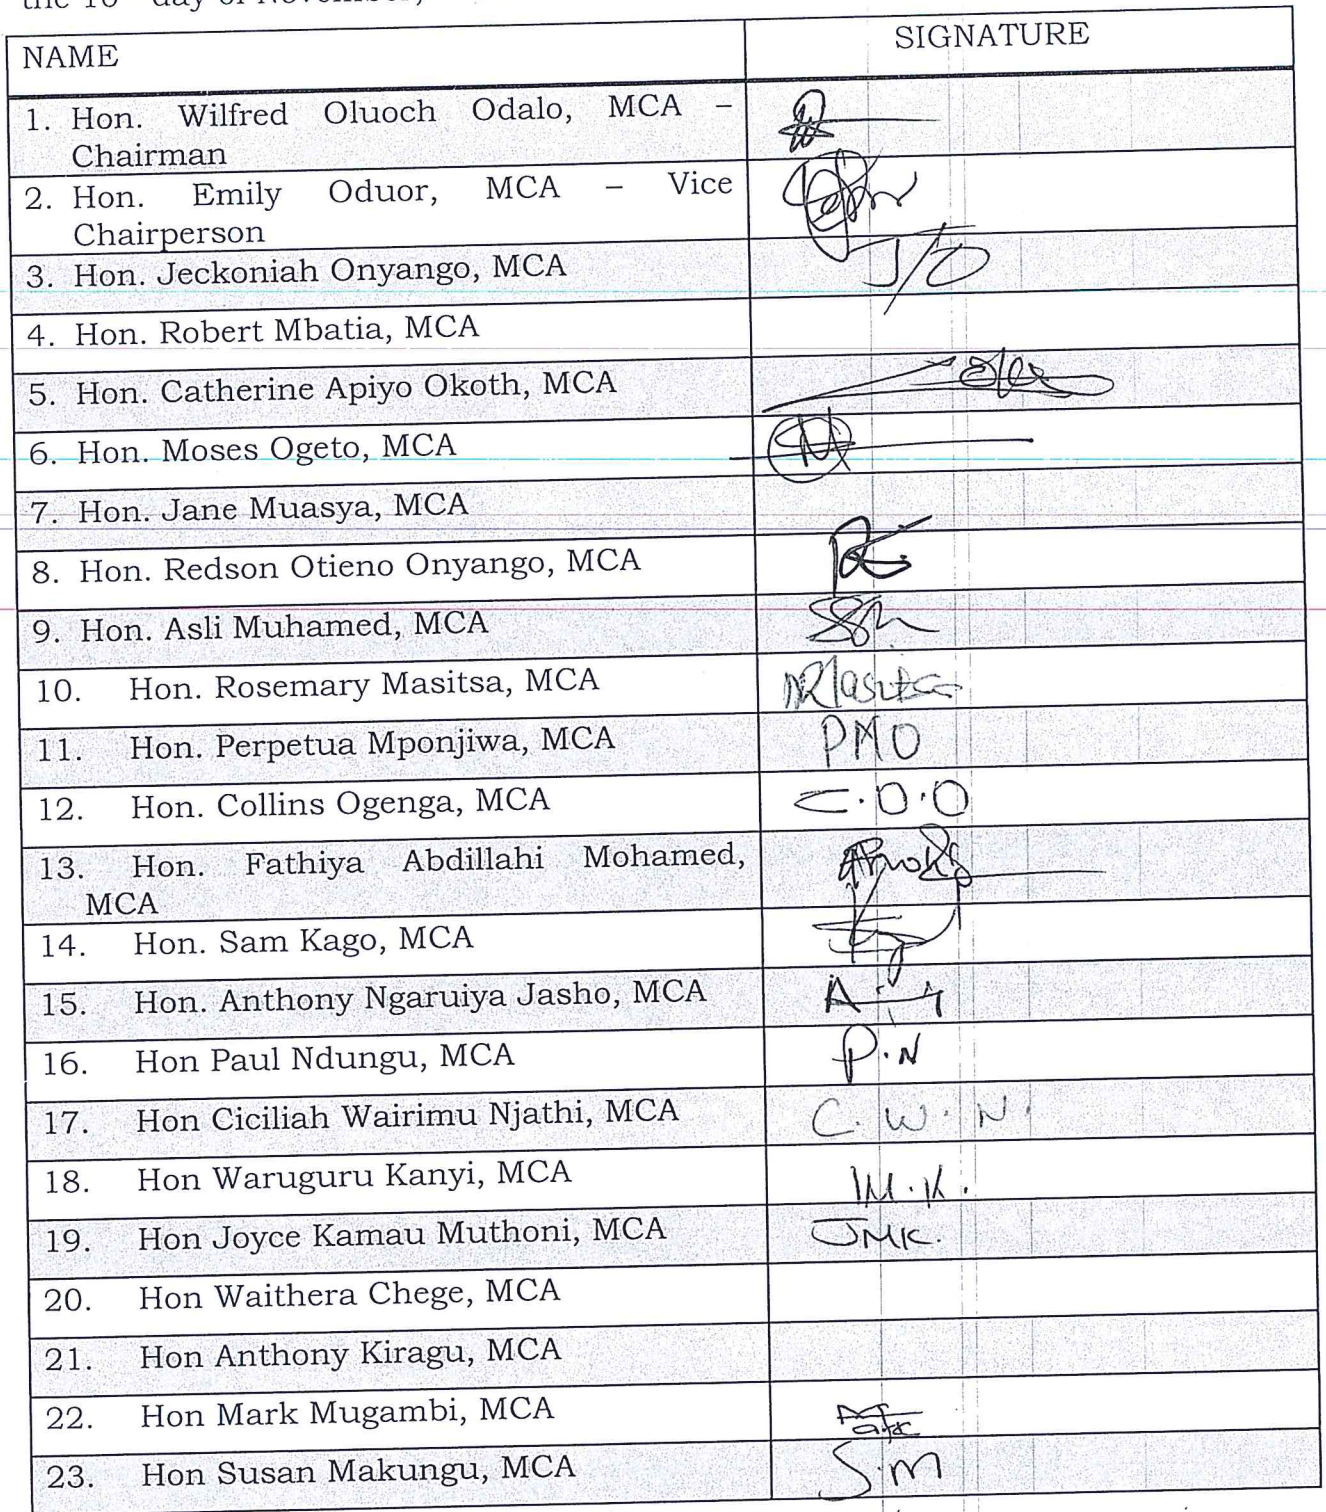 day of November,
NAME SIGNATURE
1. Hon. Wilfred Oluoch Odalo, MCA –
Chairman
2. Hon. Emily Oduor, MCA – Vice
Chairperson
3. Hon. Jeckoniah Onyango, MCA J/O
4. Hon. Robert Mbatia, MCA
5. Hon. Catherine Apiyo Okoth, MCA
6. Hon. Moses Ogeto, MCA
7. Hon. Jane Muasya, MCA
8. Hon. Redson Otieno Onyango, MCA
9. Hon. Asli Muhamed, MCA
10. Hon. Rosemary Masitsa, MCA
11. Hon. Perpetua Mponjiwa, MCA PMO
12. Hon. Collins Ogenga, MCA C.O.O
13. Hon. Fathiya Abdillahi Mohamed,
MCA
14. Hon. Sam Kago, MCA
15. Hon. Anthony Ngaruiya Jasho, MCA
16. Hon Paul Ndungu, MCA P.N
17. Hon Ciciliah Wairimu Njathi, MCA C.W.N.
18. Hon Waruguru Kanyi, MCA
19. Hon Joyce Kamau Muthoni, MCA JMK.
20. Hon Waithera Chege, MCA
21. Hon Anthony Kiragu, MCA
22. Hon Mark Mugambi, MCA
23. Hon Susan Makungu, MCA S.M